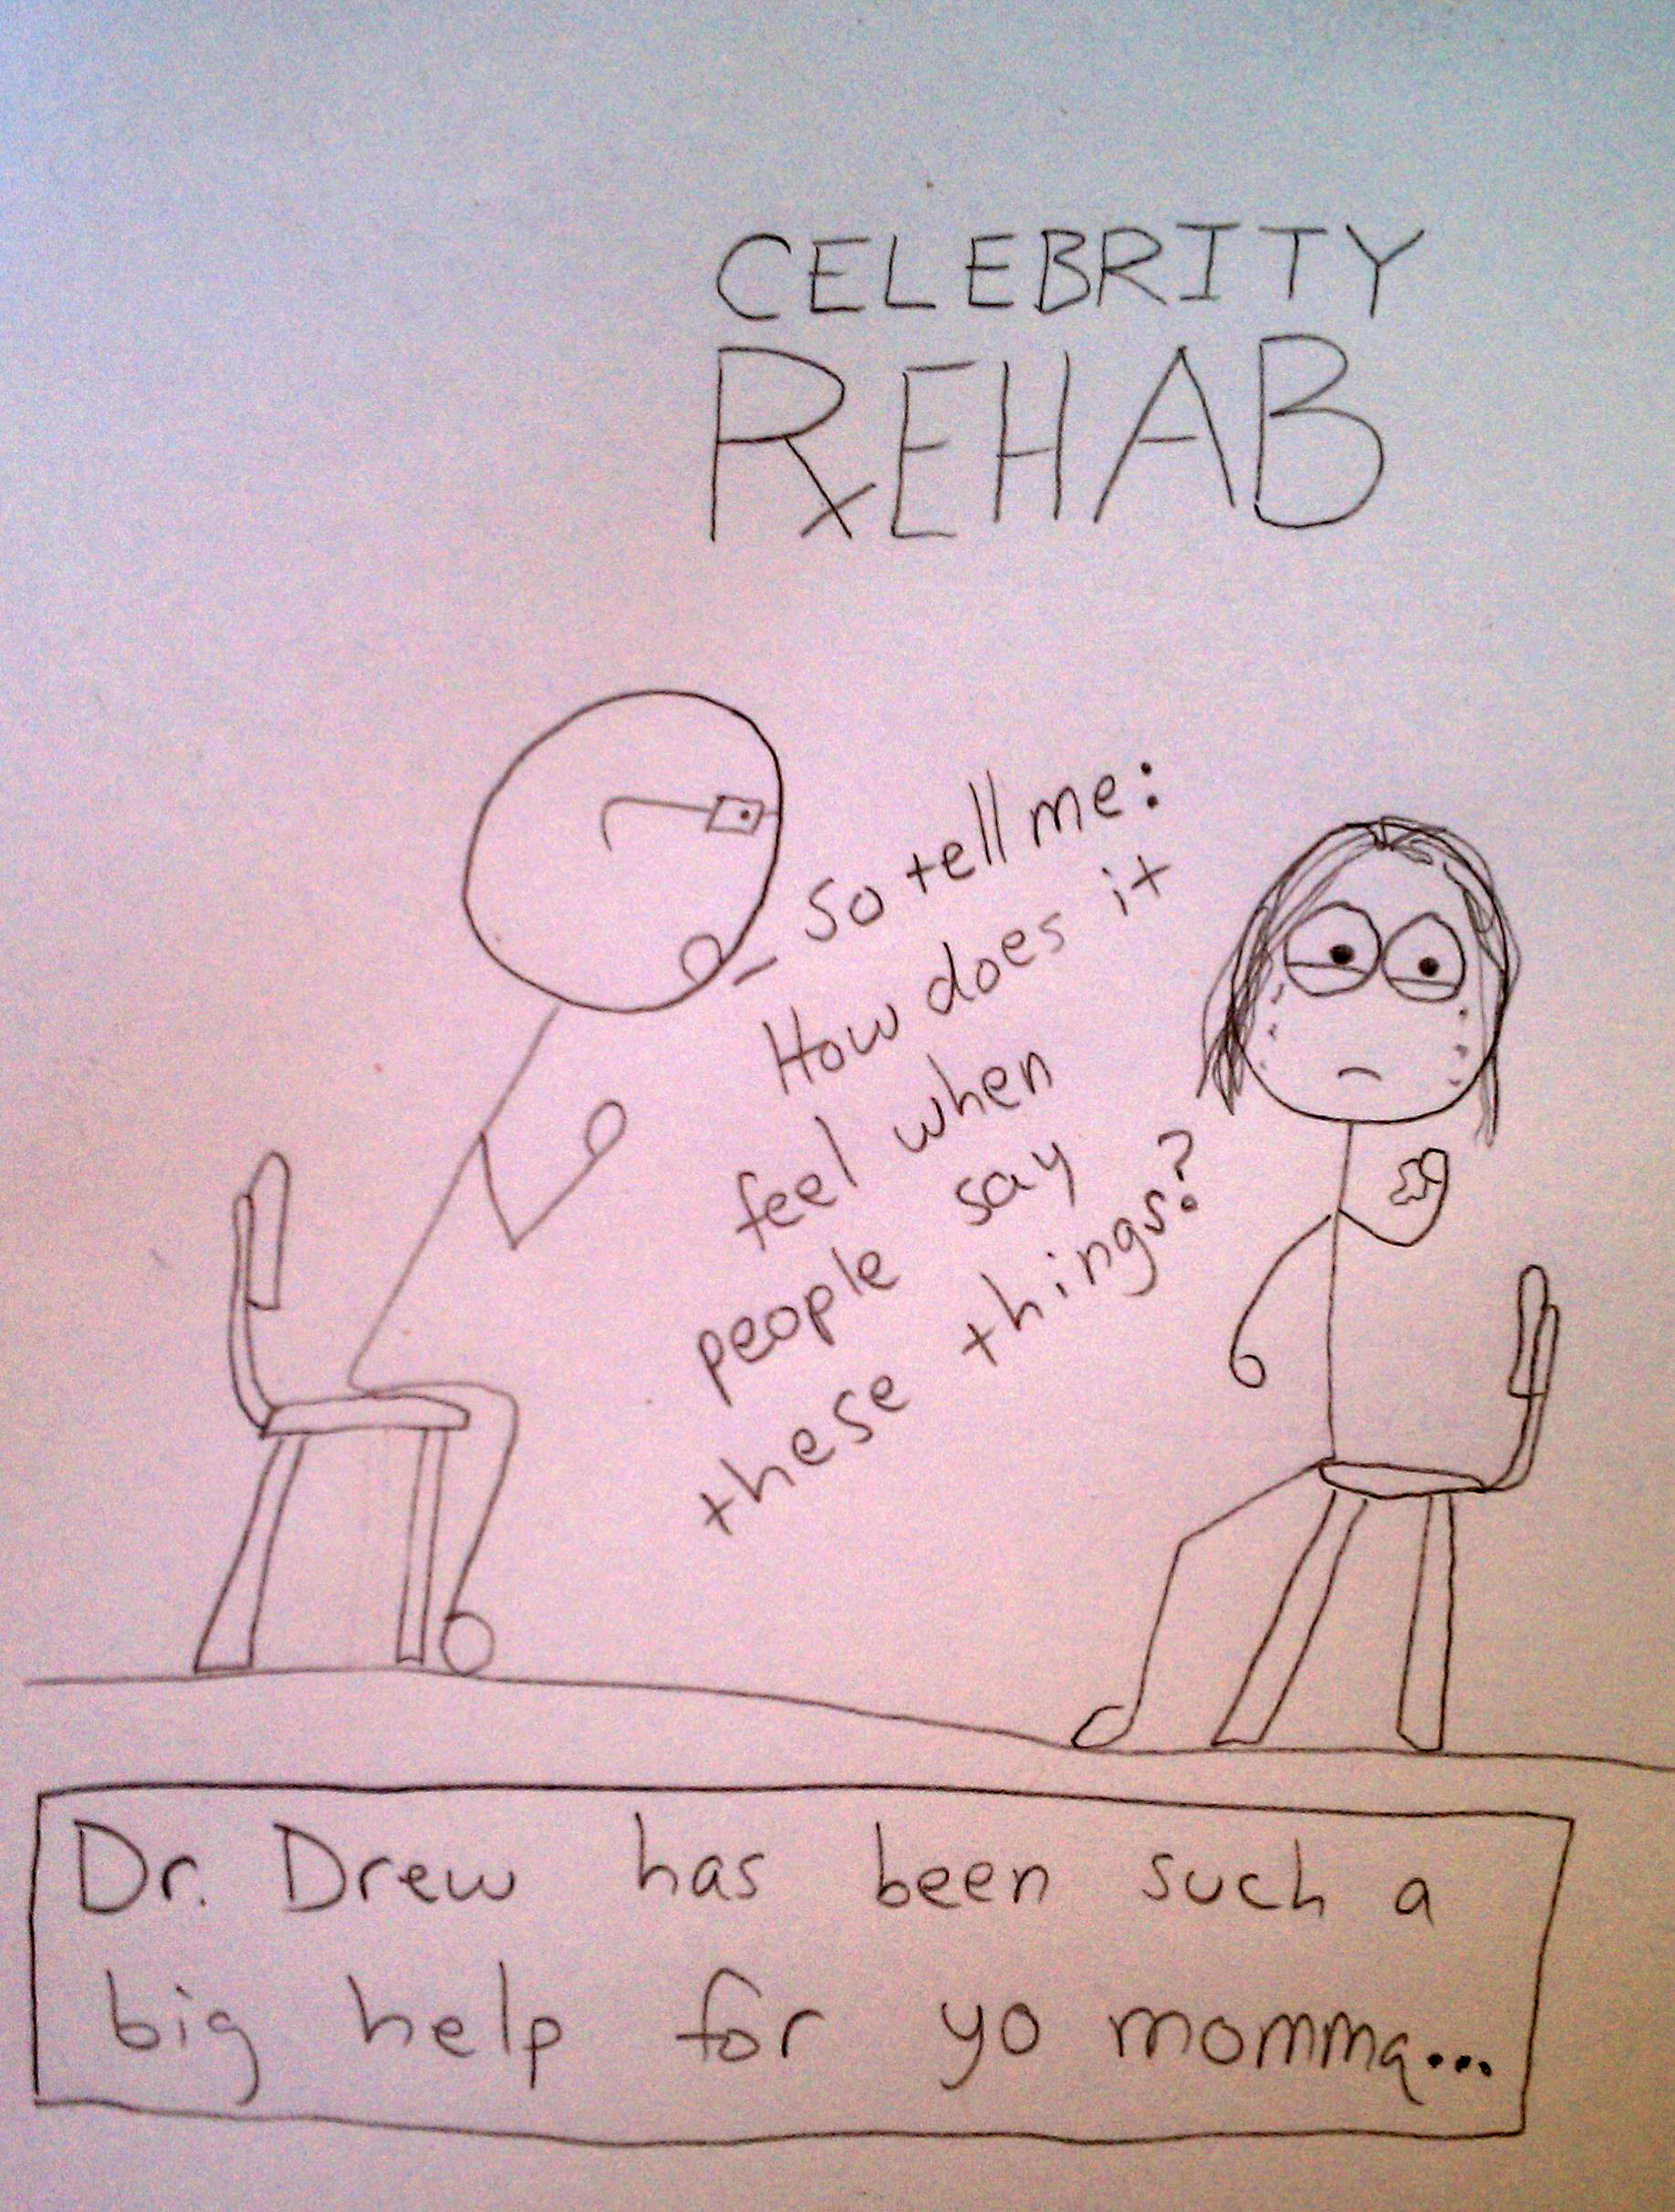 CELEBRITY
REHAB
So tell me:
How does it
feel when
people say
these things?
Dr. Drew has been such a
big help for yo momma...